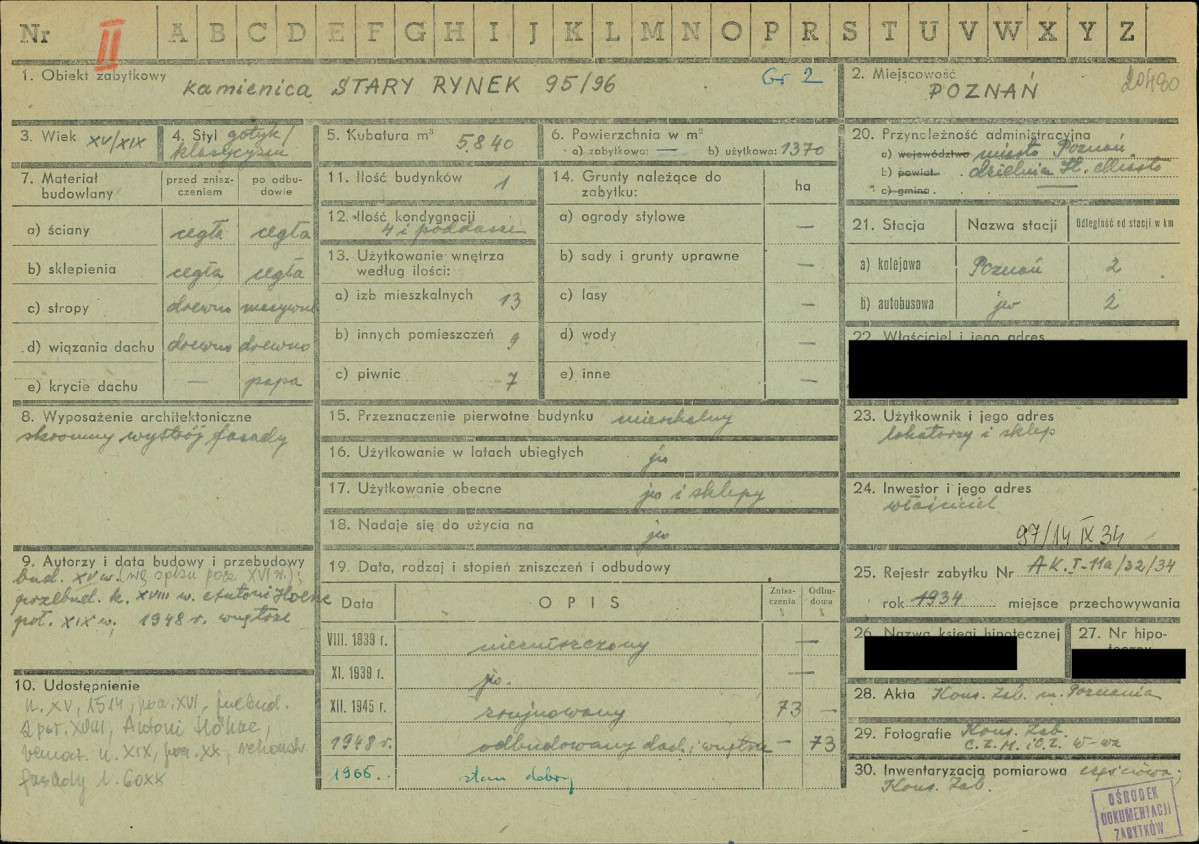 Nr II A B C D E F G H I J K L M N O P R S T U V W X Y Z
1. Obiekt zabytkowy kamienica STARY RYNEK 95/96 Gr 2
2. Miejscowość POZNAŃ 20480
3. Wiek XV/XIX
4. Styl gotyk/
klasycyzm
5. Kubatura m³ 5.840
6. Powierzchnia w m²
a) zabytkowa: — b) użytkowa: 1370
20. Przynależność administracyjna
a) województwo miasto Poznań
b) powiat. dzielnica St. Miasto
c) gmina. —
7. Materiał budowlany
przed zniszczeniem
po odbudowie
a) ściany cegła cegła
b) sklepienia cegła cegła
c) stropy drewno masywne
d) wiązania dachu drewno drewno
e) krycie dachu — papa
8. Wyposażenie architektoniczne
skromny wystrój fasady
9. Autorzy i data budowy i przebudowy
bud. XV w. (wg spisu pocz. XVI w.);
przebud. k. XVIII w. Antoni Hoene
poł. XIX w. 1948 r. wnętrze
10. Udostępnienie
XV, 1514, pocz. XVI, przebud.
2 poł. XVIII, Antoni Höhne,
XIX, pocz. XX,
fasady l. 60 XX
11. Ilość budynków 1
12. Ilość kondygnacji
4 i poddasze
13. Użytkowanie wnętrza
według ilości:
a) izb mieszkalnych 13
b) innych pomieszczeń 9
c) piwnic 7
14. Grunty należące do
zabytku: ha
a) ogrody stylowe —
b) sady i grunty uprawne —
c) lasy —
d) wody —
e) inne —
15. Przeznaczenie pierwotne budynku mieszkalny
16. Użytkowanie w latach ubiegłych jw
17. Użytkowanie obecne jw i sklepy
18. Nadaje się do użycia na jw
19. Data, rodzaj i stopień zniszczeń i odbudowy
Data OPIS Zniszczenia % Odbudowa %
VIII. 1939 r. niezniszczony —
XI. 1939 r. jw. —
XII. 1945 r. zrujnowany 73 —
1948 r. odbudowany dach i wnętrze — 73
1965.. stan dobry
21. Stacja Nazwa stacji Odległość od stacji w km
a) kolejowa Poznań 2
b) autobusowa jw 2
22. Właściciel i jego adres
23. Użytkownik i jego adres
lokatorzy i sklep
24. Inwestor i jego adres
właściciel
97/14 IX 34
25. Rejestr zabytku Nr AK.I-11a/32/34
rok 1934 miejsce przechowywania
26. Nazwa księgi hipotecznej
27. Nr hipoteczny
28. Akta Kons. Zab. m. Poznania
29. Fotografie Kons. Zab.
C.Z.M. i O.Z. W-wa
30. Inwentaryzacja pomiarowa częściowa;
Kons. Zab.
OŚRODEK
DOKUMENTACJI
ZABYTKÓW